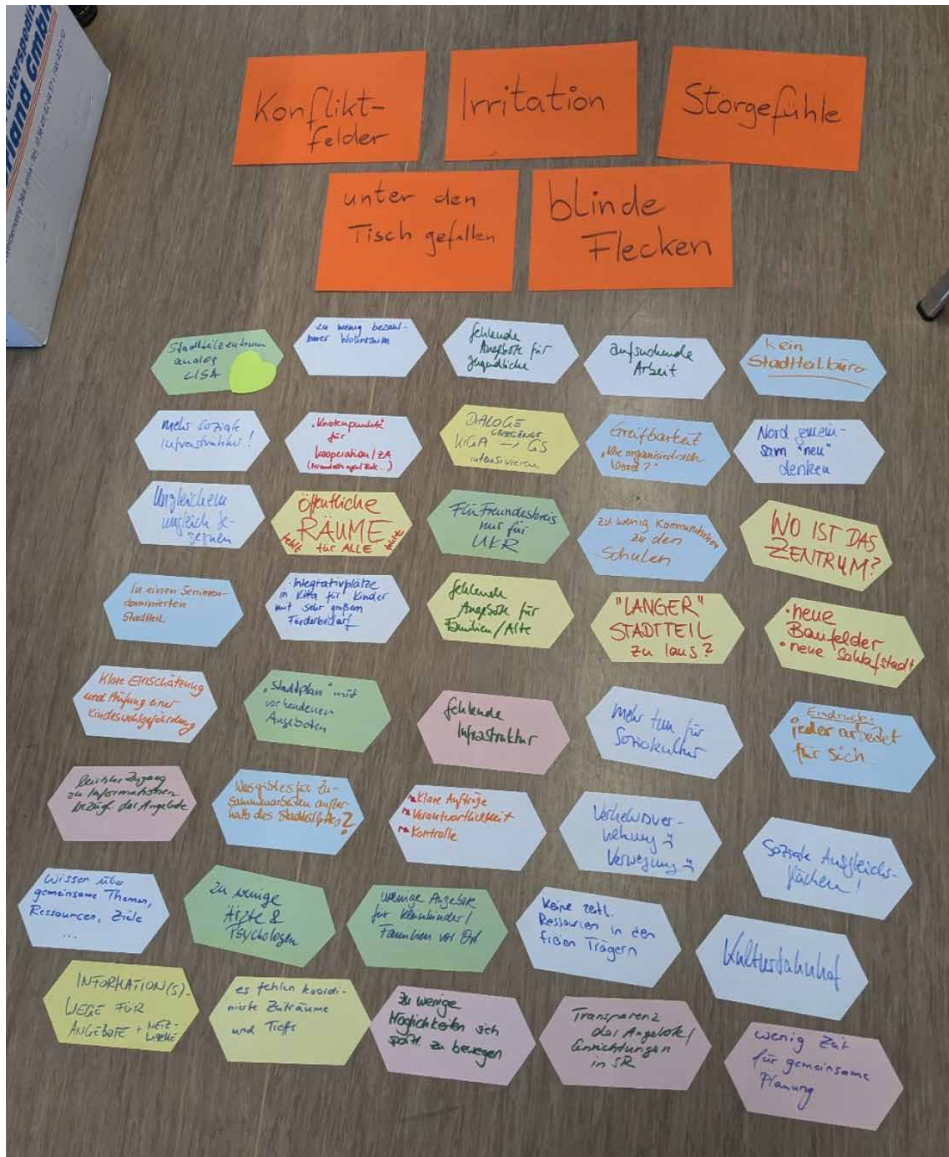 Güterspedit
rland GmbH
Konflikt-
felder
Irritation
Störgefühle
unter den
Tisch gefallen
blinde
Flecken
Stadtteilzentrum
analog
LISA
zu wenig bezahl-
barer Wohnraum
fehlende
Angebote für
Jugendliche
aufsuchende
Arbeit
Kein
Stadtteilbüro
mehr soziale
Infrastruktur!
"Knotenpunkte"
für
Kooperation/ZA
DIALOGE
KiGA → GS
intensivieren
Greifbarkeit
"Wie organisiert sich
Nord?"
Nord gemein-
sam "neu"
denken
Ungleichem
ungleich be-
gegnen
öffentliche
RÄUME
fehlt für ALLE heute
FlüFreundeskreis
nur für
UKR
zu wenig Kommunikation
zu den
Schulen
WO IST DAS
ZENTRUM?
In einen Senioren-
dominierten
Stadtteil
Integrativplätze
in Kitta für Kinder
mit sehr großem
Förderbedarf
fehlende
Angebote für
Familien/Alte
"LANGER"
STADTTEIL
zu lang?
• neue
Baufelder
• neue Schlafstadt
Klare Einschätzung
und Prüfung einer
Kindeswohlgefährdung
"Stadtplan" mit
vorhandenen
Angeboten
fehlende
Infrastruktur
mehr tun für
Soziokultur
Eindruck:
jeder arbeitet
für sich
leichter Zugang
zu Informationen
bezügl. der Angebote
Was gibt es für Zu-
sammenarbeiten außer-
halb des Stadtteil
Klare Aufträge
Verantwortlichkeit
Kontrolle
Verkehrsver-
Soziale Ausgleichs-
flächen!
Wissen über
gemeinsame Themen,
Ressourcen, Ziele
...
Zu wenige
Ärzte &
Psychologen
wenige Angebote
für Kleinkinder/
Familien vor Ort
Keine zeitl.
Ressourcen in den
freien Trägern
Kulturbahnhof
INFORMATION(S)-
WEGE FÜR
ANGEBOTE + NETZ-
WERKE
es fehlen koordi-
nierte Zeiträume
und Treffs
Zu wenige
Möglichkeiten sich
sportl. zu bewegen
Transparenz
der Angebote/
Einrichtungen
in SR
wenig Zeit
für gemeinsame
Planung